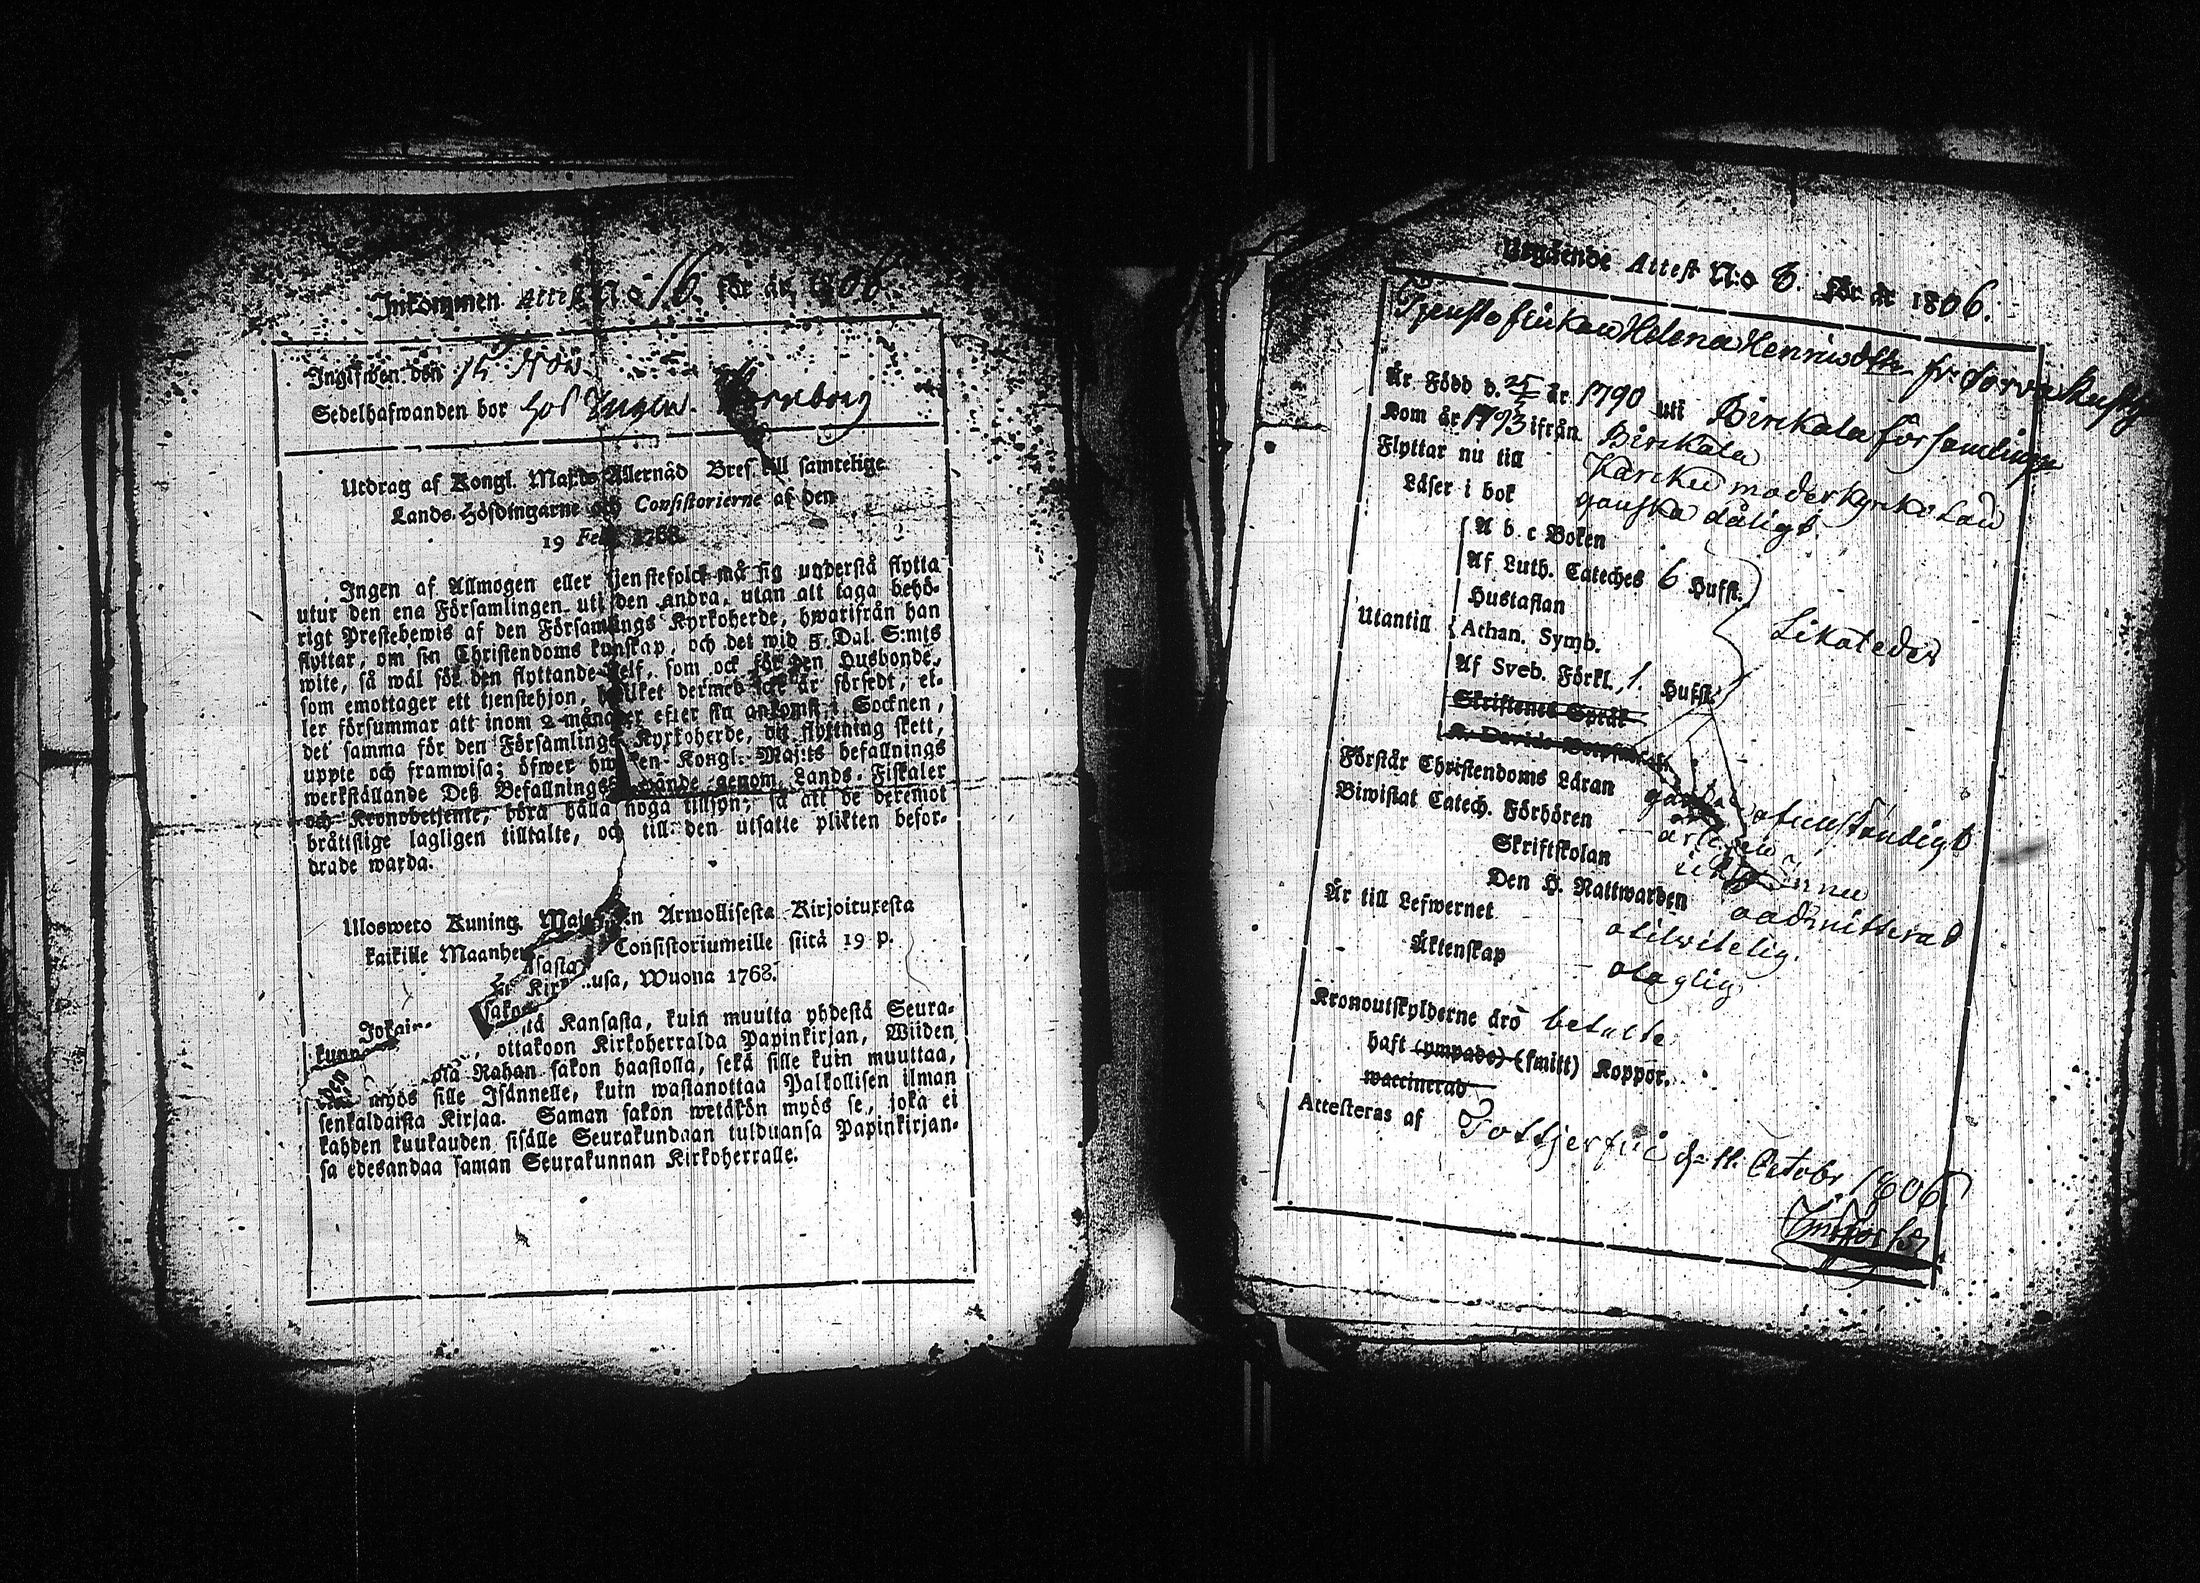 Inkommen Attest N:o 16. för år 1806
Ingifwen den 15 Nov.
Sedelhafwanden bor hos
Utdrag af Kongl. Maj:ts Allernåd Bref till samtelige
Lands-Höfdingarne och Consistorierne af den
19 Febr. 1768.
Ingen af Allmogen eller tjenstefolck må sig understå flytta
utur den ena Församlingen uti den andra, utan att taga behö-
rigt Prestebewis af den Församlings Kyrkoherde, hwarifrån han
flyttar, om sin Christendoms kunskap, och det wid 5. Dal. S:mts
wite, så wäl för den flyttande self, som ock för den Husbonde,
som emottager ett tjenstehjon, hwilket dermed icke är försedt, el-
ler försummar att inom 2 månader efter sin ankomst i Socknen,
det samma för den Församlings Kyrkoherde, dit flyttning skett,
uppte och framwisa; öfwer hwilken Kongl. Maj:ts befallnings
werkställande Deß Befallningshafwande genom Lands-Fiskaler
och Kronobetjente, böra hålla noga tillsyn; så att de deremot
bråttslige lagligen tilltalte, och till den utsatte plikten befor-
drade warda.
Ulosweto Kuning. Maj:tin Armollisesta Kirjoituxesta
kaikille Maanhe Consistoriumeille siitä 19 p.
Kir usa, Wuona 1768.
Jokai tä Kansasta, kuin muutta yhdestä Seura-
kunn , ottakoon Kirkoherralda Papinkirjan, Wiiden
Rahan sakon haastolla, sekä sille kuin muuttaa,
myös sille Isännelle, kuin wastanottaa Palkollisen ilman
senkaldaista Kirjaa. Saman sakon wetäkön myös se, joka ei
kahden kuukauden sisälle Seurakundaan tulduansa Papinkirjan-
sa edesandaa saman Seurakunnan Kirkoherralle.
Utgående Attest N:o 8. för år 1806.
Tjensteflickan Helena Henricsdtr fr.
Är Född d. 25 år 1790 uti Birckala församling
Kom år 1793 ifrån Birckala
Flyttar nu till Karcku moderkyrko
Läser i bok ganska dåligt.
A b c Boken
Af Luth. Cateches 6 Hufst.
Hustaflan
Utantill Athan. Symb. Likaledes
Af Sveb. Förkl. 1. Hufst.
Skriftenes Språk
K. Davids
Förstår Christendoms Läran ganska ofullständigt
Biwistat Catech. Förhören årligen
Skriftskolan icke ännu
Den H. Nattwarden oadmitterad
Är till Lefwernet oklanderlig.
Äktenskap oläglig
Kronoutskylderne äro betalte
haft (ympade) (smitt) Koppor.
vaccinerad
Attesteras af Tottjerfwi d. 11. Octobr 1806